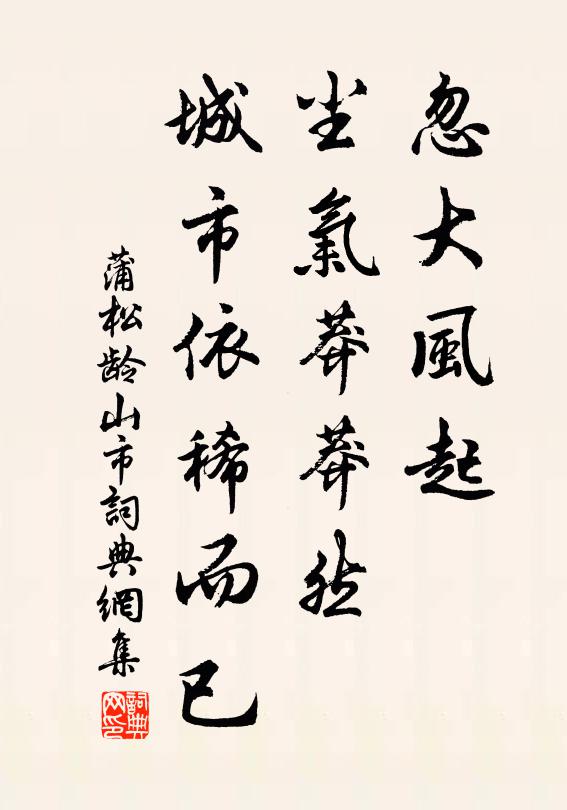 忽大風起
尘氣莽莽然
城市依稀而已
蒲松龄山市詞典網集
詞典
网印